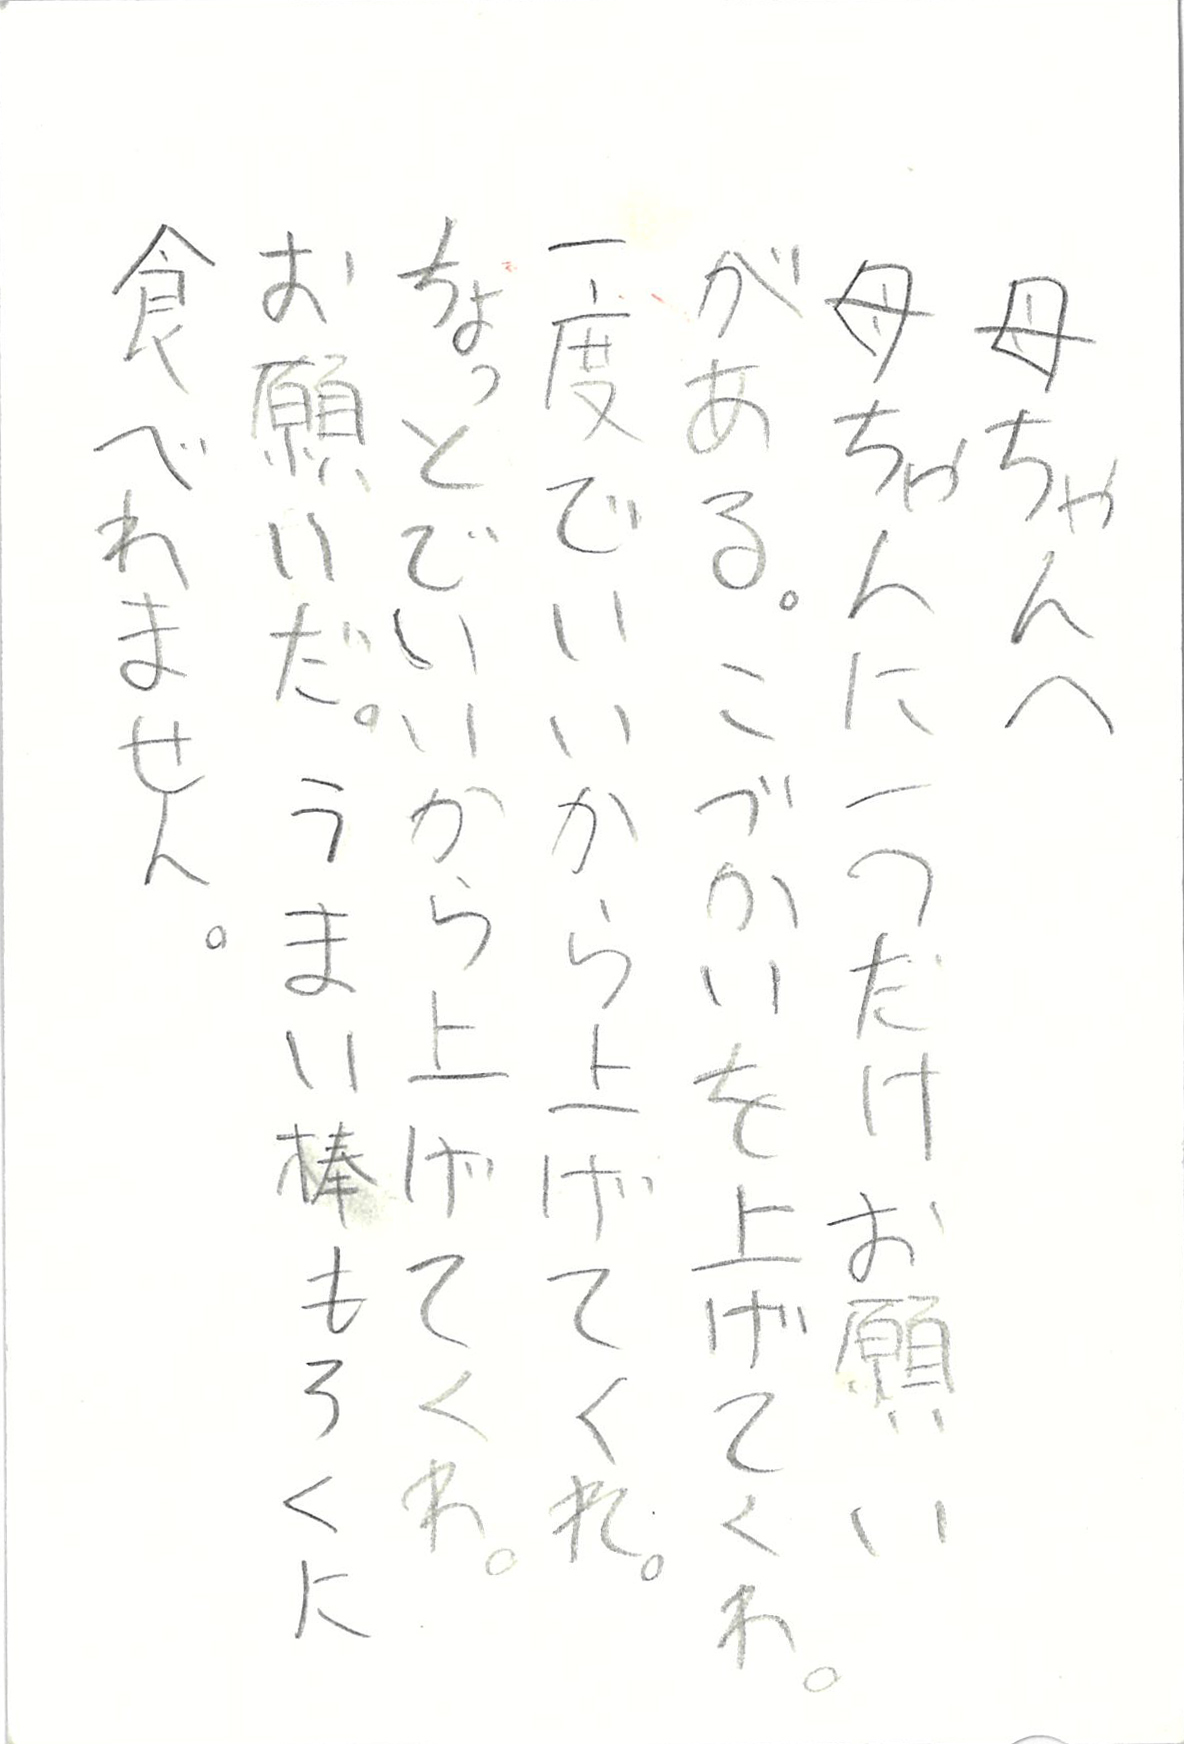 母ちゃんへ
母ちゃんに一つだけお願い
がある。こづかいを上げてくれ。
一度でいいから上げてくれ。
ちょっとでいいから上げてくれ。
お願いだ。うまい棒もろくに
食べれません。